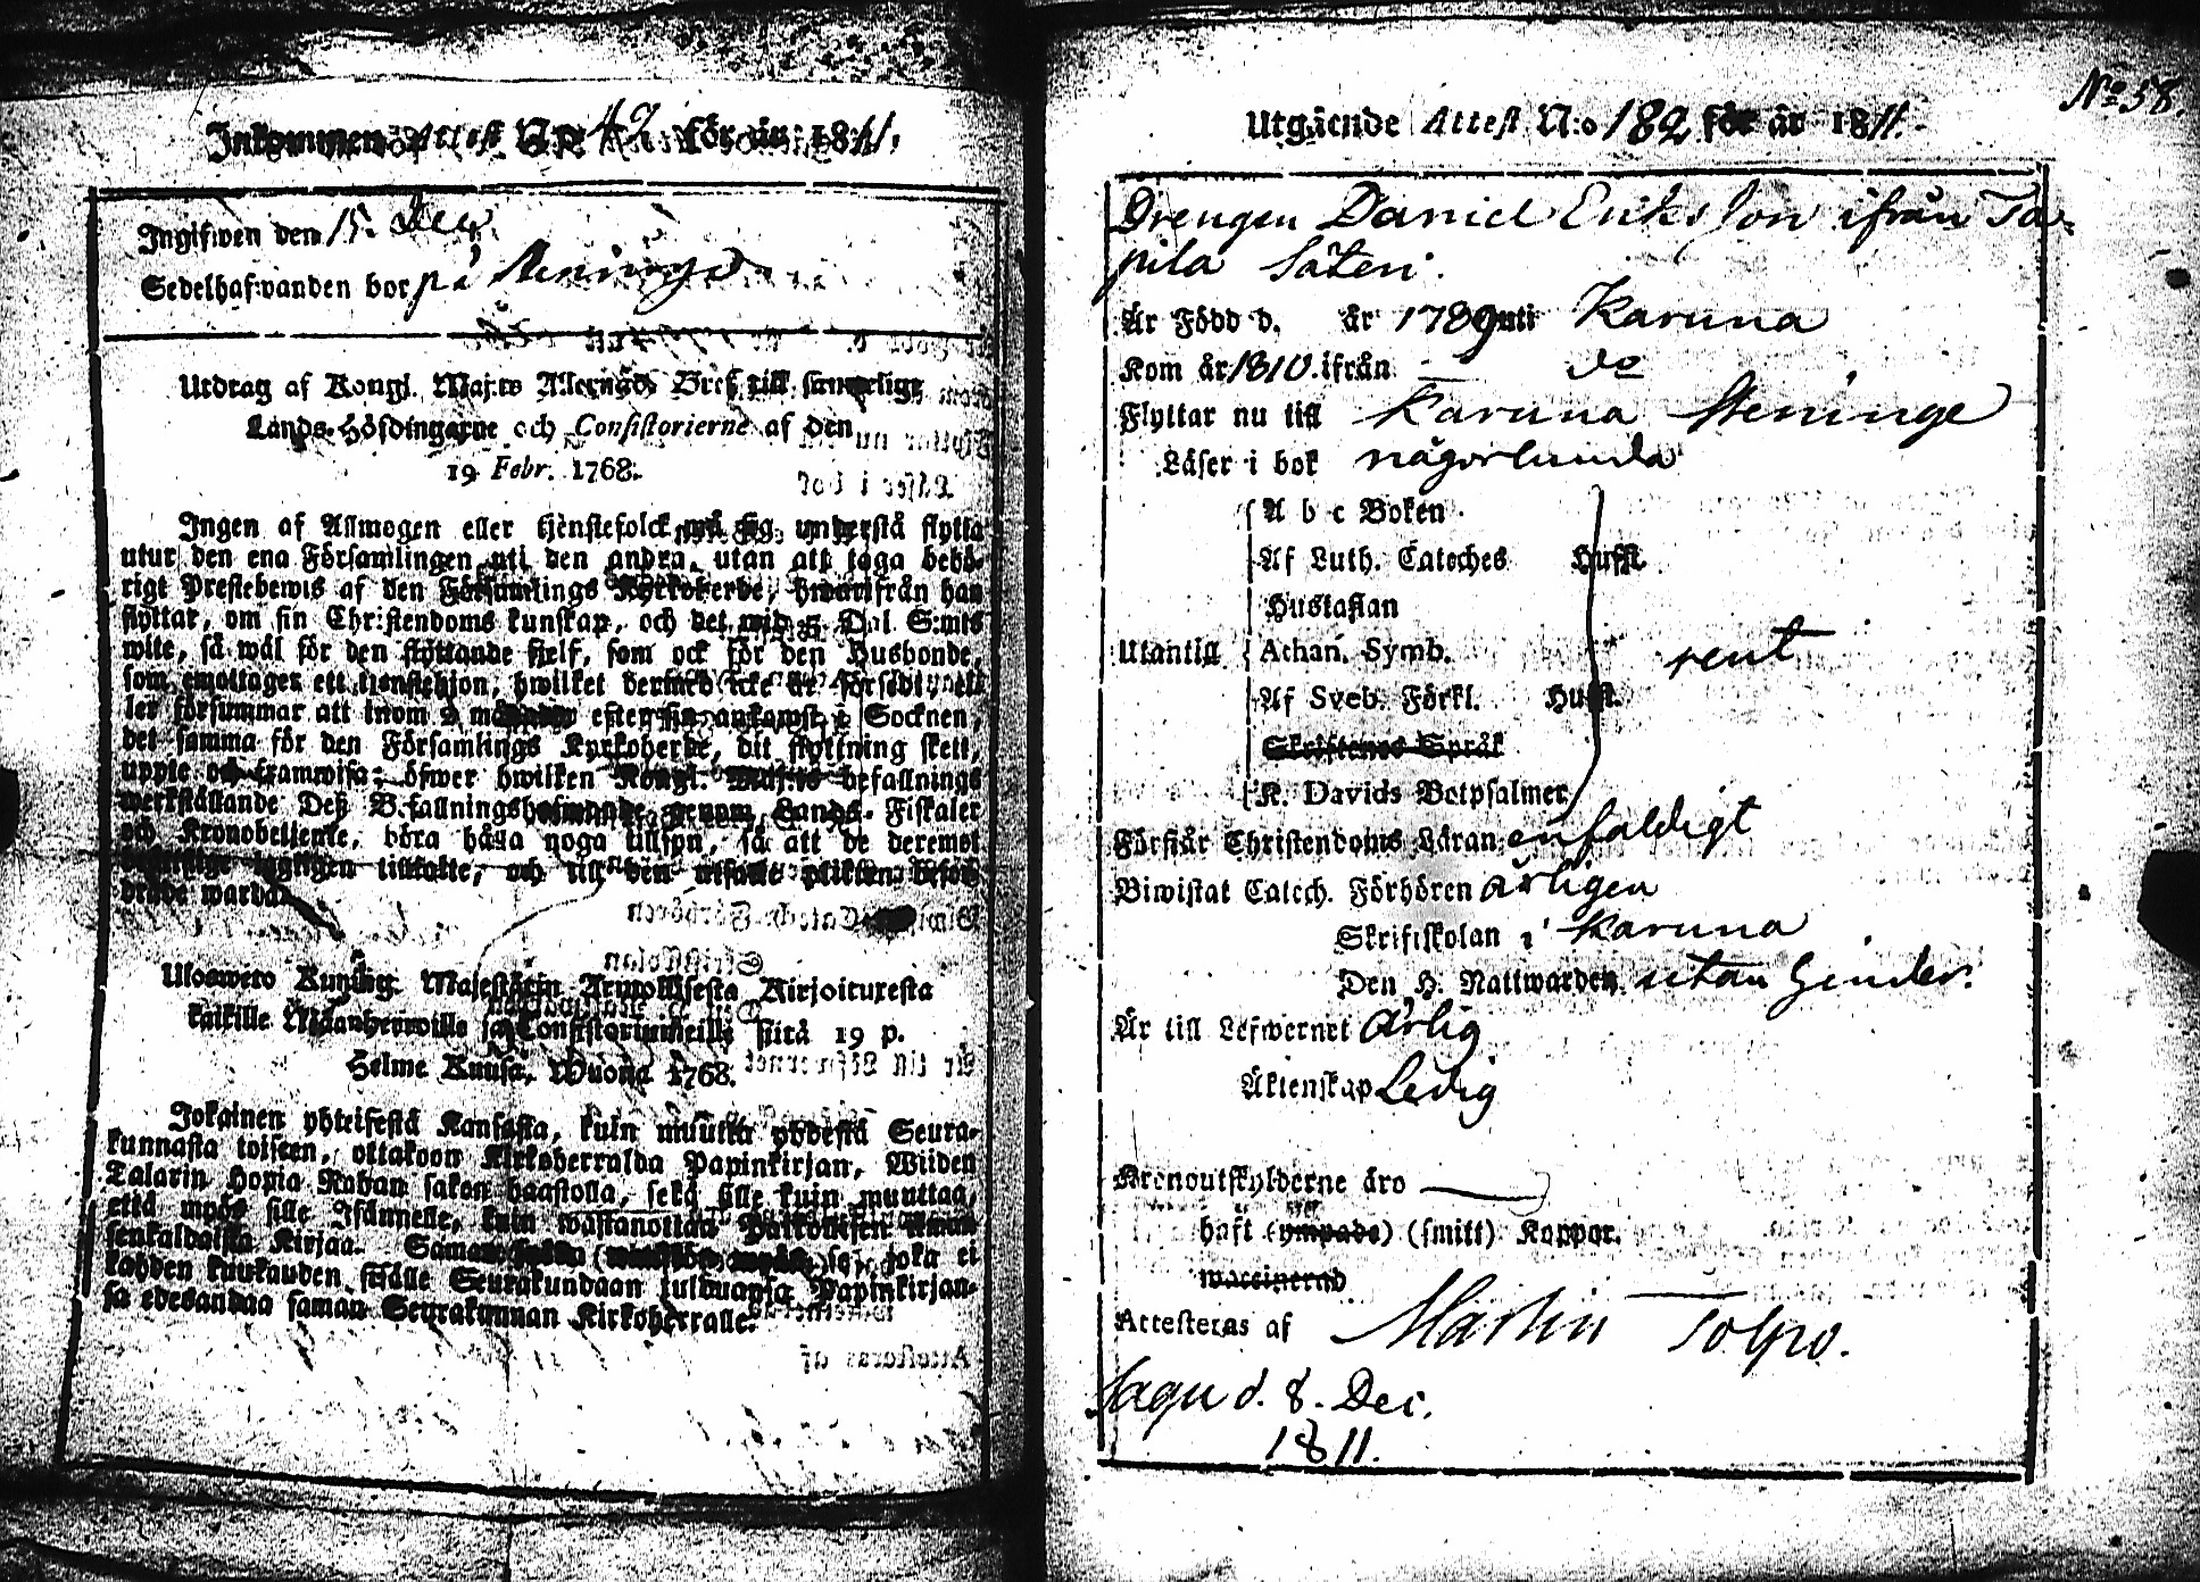 Inkommen Attest N:o 42 för år 1811.
Ingifwen den 15. Dec.
Sedelhafwanden bor på Steninge
Utdrag af Kongl. Maj:ts Allernåd. Bref till samtelige
Lands-Höfdingarne och Consistorierne af den
19 Febr. 1768.
Ingen af Allmogen eller tjenstefolck må sig understå flytta
utur den ena Församlingen uti den andra, utan att taga behö-
rigt Prestebewis af den Församlings Kyrkoherde, hwarifrån han
flyttar, om sin Christendoms kunskap, och det wid 5 Dal. S:mts
wite, så wäl för den flyttande sjelf, som ock för den Husbonde,
som emottager ett tjenstehjon, hwilket dermed icke är försedt, el-
ler försummar att inom 2 månader efter sin ankomst i Socknen,
det samma för den Församlings Kyrkoherde, dit flyttning skett,
uppte och framwisa; öfwer hwilken Kongl. Maj:ts befallnings
werkställande Deß Befallningshafwande genom Lands-Fiskaler
och Kronobetjente, böra hålla noga tillsyn, så att de deremot
lagligen tilltalte, och till den
warda.
Ulosweto Kuning. Majestätin Armollisesta Kirjoituxesta
kaikille Maanherroille ja Consistoriumeille siitä 19 p.
Helme Kuusa, Wuona 1768.
Jokainen yhteisestä Kansasta, kuin muutta yhdestä Seura-
kunnasta toiseen, ottakoon Kirkoherralda Papinkirjan, Wiiden
Talarin Hopia Rahan sakon haastolla, sekä sille kuin muuttaa,
että myös sille Isännelle, kuin wastanottaa Palkollisen ilman
senkaldaista Kirjaa. Saman joka ei
kahden kuukauden sisälle Seurakundaan tulduansa Papinkirjan-
sa edesandaa saman Seurakunnan Kirkoherralle.
N:o 38.
Utgående Attest N:o 182 för år 1811.
Drengen Daniel Eriksson ifrån Ta-
pila Säteri.
Är Född d. år 1789 uti Karuna
Kom år 1810. ifrån do
Flyttar nu till Karuna Steninge
Läser i bok någorlunda
A b c Boken
Af Luth. Cateches Hufst.
Hustaflan
Utantill Athan. Symb. rent
Af Sveb. Förkl. Hufst.
Skriftenes Språk
K. Davids Botpsalmer
Förstår Christendoms Läran enfaldigt
Biwistat Catech. Förhören årligen
Skriftskolan i Karuna
Den H. Nattwarden utan hinder.
Är till Lefwernet ärlig
Äktenskap Ledig
Kronoutskylderne äro
haft (ympade) (smitt) Koppor.
waccinerad
Attesteras af Martin Tolpo.
Sagu d. 8. Dec.
1811.